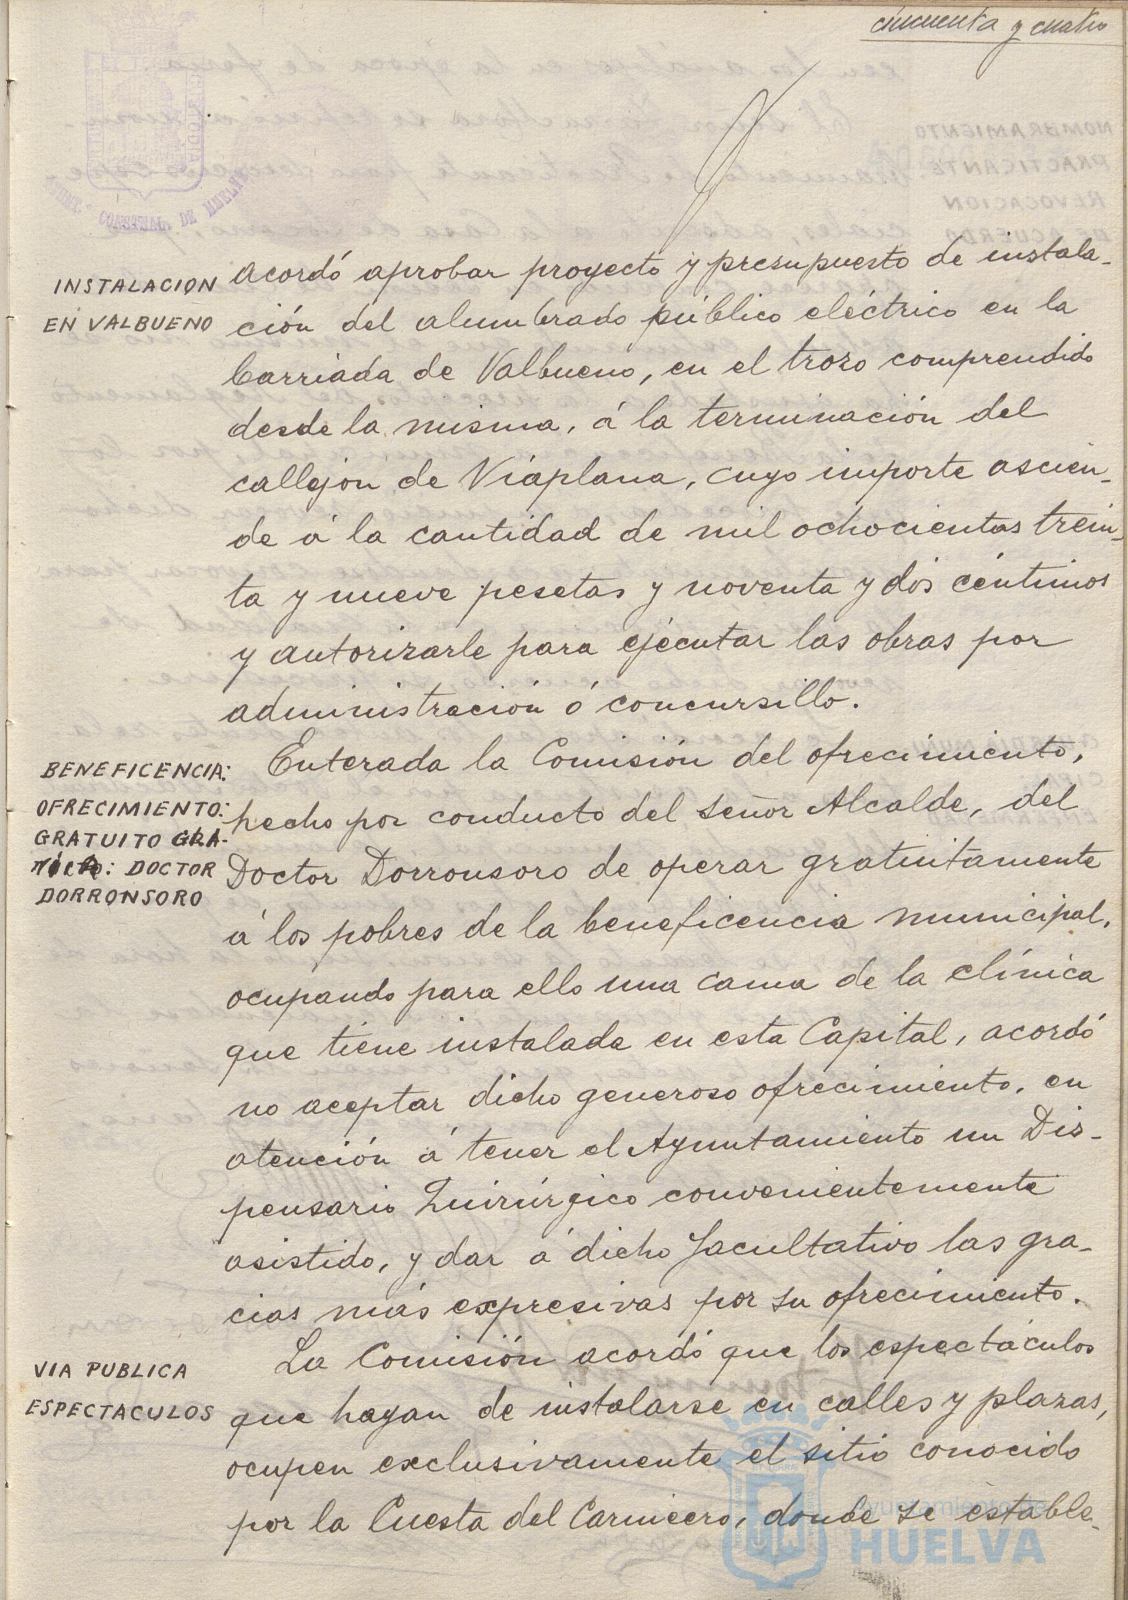 cincuenta y cuatro
INSTALACION
EN VALBUENO
acordó aprobar proyecto y presupuesto de instala-
ción del alumbrado público eléctrico en la
barriada de Valbueno, en el trozo comprendido
desde la misma, á la terminación del
callejón de Viaplana, cuyo importe ascien-
de á la cantidad de mil ochocientas trein-
ta y nueve pesetas y noventa y dos céntimos
y autorizarle para ejecutar las obras por
administración ó concursillo.
BENEFICENCIA:
OFRECIMIENTO:
GRATUITO
DOCTOR
DORRONSORO
Enterada la Comisión del ofrecimiento,
hecho por conducto del señor Alcalde, del
Doctor Dorronsoro de operar gratuitamente
á los pobres de la beneficencia municipal,
ocupando para ello una cama de la clínica
que tiene instalada en esta Capital, acordó
no aceptar dicho generoso ofrecimiento, en
atención á tener el Ayuntamiento un Dis-
pensario Quirúrgico convenientemente
asistido, y dar á dicho facultativo las gra-
cias más expresivas por su ofrecimiento.
VIA PUBLICA
ESPECTACULOS
La Comisión acordó que los espectáculos
que hayan de instalarse en calles y plazas,
ocupen exclusivamente el sitio conocido
por la Cuesta del Carnicero, donde se estable-
Ayuntamiento de
HUELVA